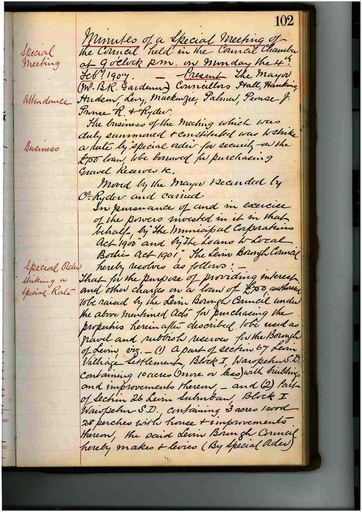 102
Minutes of a Special Meeting of
the Council held in the Council Chamber
at 9 o'clock p.m. on Monday the 4th
Feby 1907. — Present The Mayor
(W. B.R. Gardener) Councillors Hall, Hankins
Levy, Mackenzie, Palmer, Prouse J.
Prouse R. & Ryder.
The business of the Meeting which was
duly summoned & constituted was to strike
a rate by special order for security on the
£750 loan to be borrowed for purchasing
Gravel Reserves &c.
Moved by the Mayor seconded by
Cr Ryder and carried
In pursuance of and in exercise
of the powers invested in it in that
behalf by the Municipal Corporations
Act 1900 and by the Loans to Local
Bodies Act 1901, The Levin Borough Council
hereby resolves as follows:—
That for the purpose of providing interest
and other charges on a loan of £750 authorised
to be raised by the Levin Borough Council under
the above mentioned Acts for purchasing the
properties hereinafter described to be used as
gravel and rubbish reserves for the Borough
of Levin viz. — (1) A part of section 67 Levin
Village Settlement, Block I Waiopehu S.D.
containing 10 acres (more or less) with buildings
and improvements thereon, — and (2) Part
of Section 26 Levin Suburban, Block I
Waiopehu S.D., containing 3 acres 1 rood
28 perches with house & improvements
thereon, the said Levin Borough Council
hereby makes & levies (By Special Order)
Special
Meeting
Attendance
Business
Special Order
striking a
special Rate